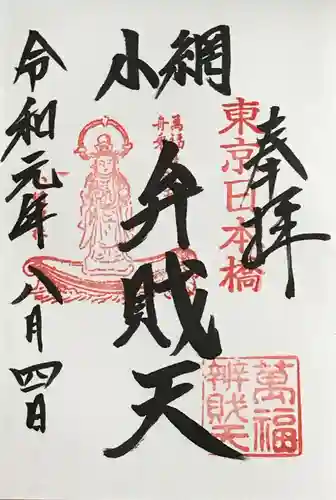 奉拝
東京日本橋
小網
萬福
舟乗
弁賊天
萬福
辨財天
令和元年八月四日